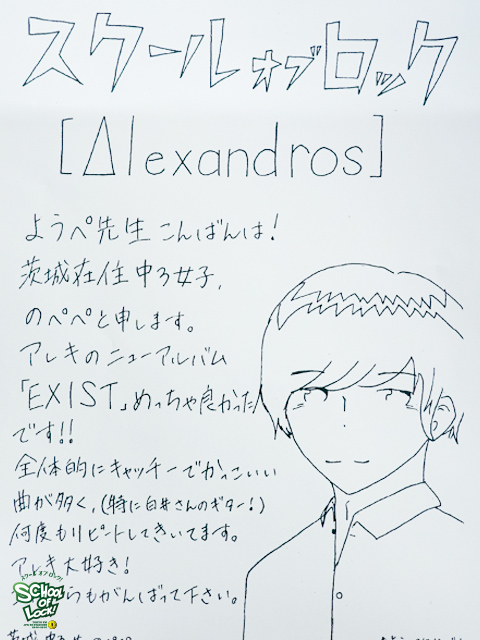 スクール オブ ロック
[Alexandros]
ようぺ先生こんばんは!
茨城在住中3女子、
のペペと申します。
アレキのニューアルバム
「EXIST」めっちゃ良かった
です!!
全体的にキャッチーでかっこいい
曲が多く、(特に白井さんのギター!)
何度もリピートしてきいてます。
アレキ大好き!
らもがんばって下さい。
スクール オブ ロック!
SCHOOL
OF
LOCK!